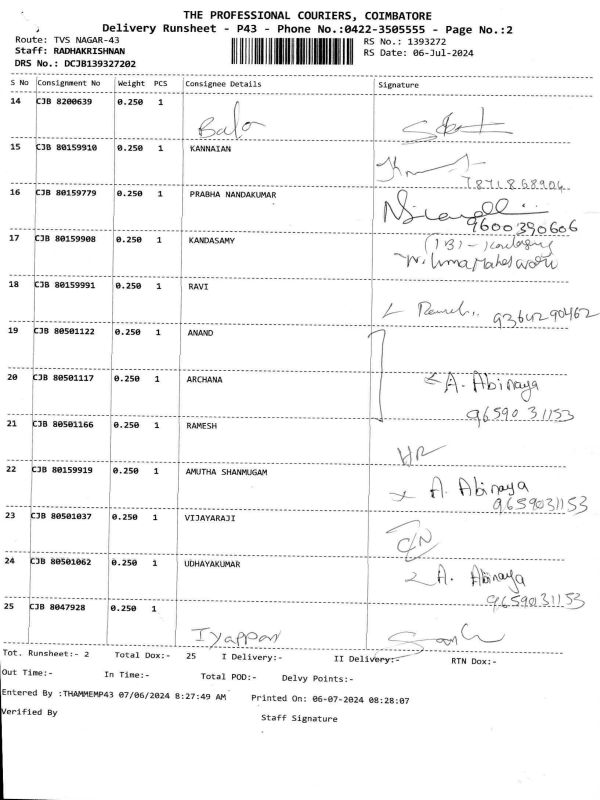 THE PROFESSIONAL COURIERS, COIMBATORE
Delivery Runsheet - P43 - Phone No.:0422-3505555 - Page No.:2
Route: TVS NAGAR-43 RS No.: 1393272
Staff: RADHAKRISHNAN RS Date: 06-Jul-2024
DRS No.: DCJB139327202
S No Consignment No Weight PCS Consignee Details Signature
14 CJB 8200639 0.250 1 Bala
15 CJB 80159910 0.250 1 KANNAIAN
7871868904
16 CJB 80159779 0.250 1 PRABHA NANDAKUMAR
9600390606
17 CJB 80159908 0.250 1 KANDASAMY
18 CJB 80159991 0.250 1 RAVI
19 CJB 80501122 0.250 1 ANAND
20 CJB 80501117 0.250 1 ARCHANA A. Abinaya
96590 31153
21 CJB 80501166 0.250 1 RAMESH
22 CJB 80159919 0.250 1 AMUTHA SHANMUGAM A. Abinaya
9659031153
23 CJB 80501037 0.250 1 VIJAYARAJI
24 CJB 80501062 0.250 1 UDHAYAKUMAR A. Abinaya
9659031153
25 CJB 8047928 0.250 1 Iyappan
Tot. Runsheet:- 2 Total Dox:- 25 I Delivery:- II Delivery:- RTN Dox:-
Out Time:- In Time:- Total POD:- Delvy Points:-
Entered By :THAMMEMP43 07/06/2024 8:27:49 AM Printed On: 06-07-2024 08:28:07
Verified By Staff Signature